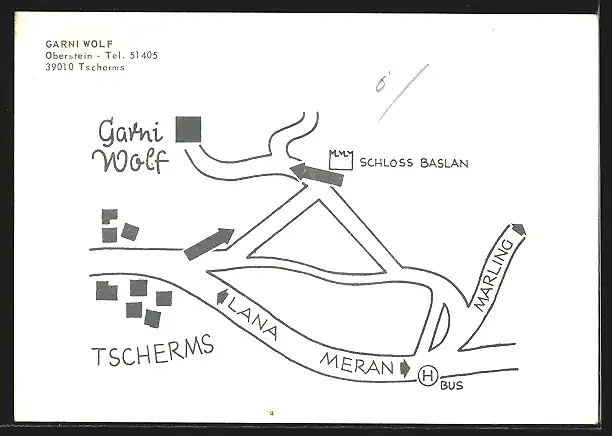 GARNI WOLF
Oberstein - Tel. 51405
39010 Tscherms
Garni
Wolf
SCHLOSS BASLAN
MARLING
LANA
MERAN
TSCHERMS
H
BUS